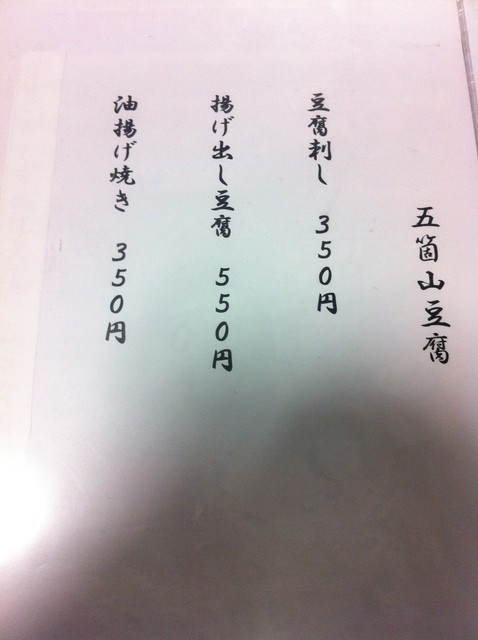 五箇山豆腐
豆腐刺し 350円
揚げ出し豆腐 550円
油揚げ焼き 350円